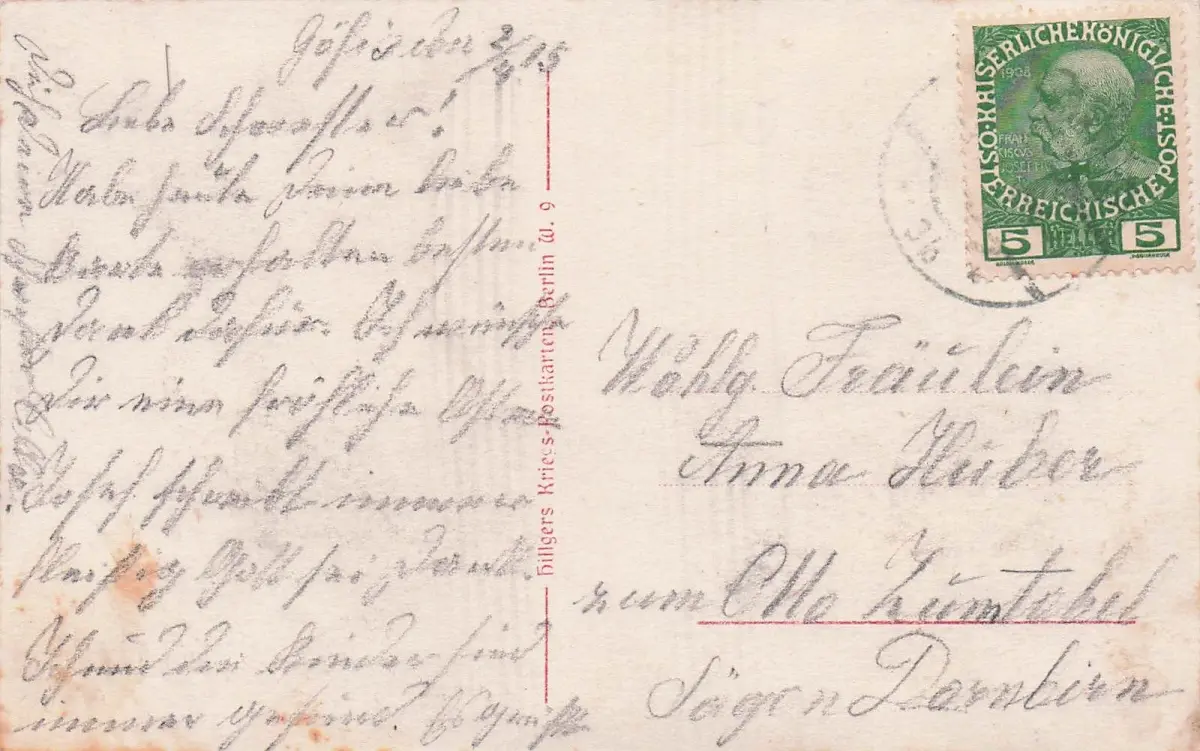 Göfis den 2/4 15
Liebe Schwester!
Habe heute deine liebe
Karte erhalten besten
Dank dafür. Ich wünsche
Dir eine fröhliche Ostern
Josef schreibt immer
fleißig Gott sei Dank.
Ich und die Kinder sind
immer gesund. Es grüßt
Dich deine Schwester
Hillgers Kriegs-Postkarten, Berlin W. 9
KAISERLICHE KÖNIGLICHE ÖSTERREICHISCHE POST
1908
FRAN
CISCVS
JOSEPH I
5 HELLER 5
Wohlg Fräulein
Anna Huber
zum Otto Zumtobel
Sägen Dornbirn